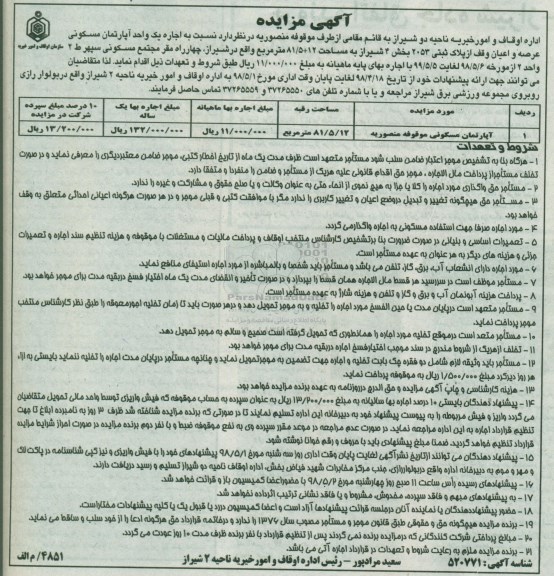 آگهی مزایده
سازمان اوقاف و امور خیریه
اداره اوقاف و امورخیریه ناحیه دو شیراز به قائم مقامی ازطرف موقوفه منصوریه درنظردارد نسبت به اجاره یک واحد آپارتمان مسکونی
عرصه و اعیان وقف ازپلاک ثبتی ۲۰۵۳ بخش ۴ شیراز به مساحت ۸۱/۵۰۱۲ مترمربع واقع درشیراز، چهارراه مقر مجتمع مسکونی سپهر ط ۲
واحد ۲ ازمورخه ۹۸/۵/۶ لغایت ۹۹/۵/۵ با اجاره بهای پایه ماهیانه به مبلغ ۱۱/۰۰۰/۰۰۰ ریال طبق شروط و تعهدات ذیل اقدام نماید. لذا متقاضیان
می توانند جهت ارائه پیشنهادات خود از تاریخ ۹۸/۴/۱۸ لغایت پایان وقت اداری مورخ ۹۸/۵/۱ به اداره اوقاف و امور خیریه ناحیه ۲ شیراز واقع دربولوار رازی
روبروی مجموعه ورزشی برق شیراز مراجعه و یا با شماره تلفن های ۳۷۲۶۵۵۵۰ و ۳۷۲۶۵۵۵۹ تماس حاصل فرمایند.
ردیف مورد مزایده مساحت رقبه مبلغ اجاره بها ماهیانه مبلغ اجاره بها یک ساله ۱۰ درصد مبلغ سپرده شرکت در مزایده
۱ آپارتمان مسکونی موقوفه منصوریه ۸۱/۵/۱۲ مترمربع ۱۱/۰۰۰/۰۰۰ ریال ۱۳۲/۰۰۰/۰۰۰ ریال ۱۳/۲۰۰/۰۰۰ ریال
شروط و تعهدات
۱ - هرگاه بنا به تشخیص موجر اعتبار ضامن سلب شود مستأجر متعهد است ظرف مدت یک ماه از تاریخ اخطار کتبی، موجر ضامن معتبردیگری را معرفی نماید و در صورت
تخلف مستأجراز پرداخت مال الاجاره ، موجر حق اقدام قانونی علیه هریک از مستأجر و ضامن را منفردا و متفقا دارد.
۲ - مستأجر حق واگذاری مورد اجاره را کلا یا جزا به هیچ نحوی از انحاء حتی به عنوان وکالت و یا صلح حقوق و مشارکت و غیره را ندارد.
۳ - مستأجر حق هیچگونه تغییر و تبدیل دروضع اعیان و تغییر کاربری را ندارد مگر با موافقت کتبی و قبلی موجر و در هر صورت هرگونه اعیانی احداثی متعلق به وقف
خواهد بود.
۴ - مورد اجاره صرفا جهت استفاده مسکونی به اجاره واگذارمی گردد.
۵ - تعمیرات اساسی و بنیانی در صورت ضرورت بنا برتشخیص کارشناس منتخب اوقاف و پرداخت مالیات و مستغلات با موقوفه و هزینه تنظیم سند اجاره و تعمیرات
جزئی و هزینه های دیگر به هر عنوان به عهده مستأجر است.
۶ - مورد اجاره دارای انشعاب آب، برق، گاز، تلفن می باشد و مستأجر باید شخصا و بالمباشره از مورد اجاره استیفای منافع نماید.
۷ - مستأجر موظف است در سررسید هر قسط مال الاجاره همان قسط را بپردازد و در صورت تأخیر و انقضای مدت یک ماه اختیار فسخ دربقیه مدت برای موجر خواهد بود.
۸ - پرداخت هزینه آبونمان آب و برق و گاز و تلفن و هزینه شارژ به عهده مستأجر است.
۹ - مستأجر متعهد است درپایان مدت یا حین الفسخ مورد اجاره را تخلیه و به موجر تحویل دهد و درهر صورت باید تا زمان تخلیه اجورمعوقه را طبق نظر کارشناس منتخب
موجر پرداخت نماید.
۱۰ - مستأجر متعهد است درموقع تخلیه مورد اجاره را همانطوری که تحویل گرفته است صحیح و سالم به موجر تحویل دهد.
۱۱ - تخلف ازهریک از شروط مندرج در سند موجب اختیارفسخ اجاره دربقیه مدت برای موجر خواهد بود.
۱۲ - مستأجر باید وثیقه لازم شامل دو فقره چک بابت تخلیه و اجاره جهت تضمین به موجرتحویل نماید و چنانچه مستأجر درپایان مدت اجاره را تخلیه ننماید بایستی به ازاء
هر روز دیرکرد مبلغ ۱/۵۰۰/۰۰۰ ریال به موقوفه پرداخت نماید.
۱۳ - هزینه کارشناسی و چاپ آگهی مزایده و حق الدرج درروزنامه به عهده برنده مزایده خواهد بود.
۱۴ - پیشنهاد دهندگان بایستی ۱۰ درصد اجاره بها سالیانه به مبلغ ۱۳/۲۰۰/۰۰۰ ریال به عنوان سپرده به حساب موقوفه که فیش واریزی توسط واحد مالی تحویل متقاضیان
می گردد واریز و فیش مربوطه را به پیوست پیشنهاد خود به دبیرخانه این اداره تسلیم نمایند تا در صورتی که برنده مزایده شناخته شد ظرف ۳ روز به نامبرده ابلاغ تا جهت
تنظیم قرارداد اجاره به این اداره مراجعه نماید. در صورت عدم مراجعه در موعد مقرر سپرده وی به نفع موقوفه ضبط و با نفر دوم برنده مزایده در صورت احراز شرایط مزایده
قرارداد تنظیم خواهد گردید. ضمنا مبلغ پیشنهادی باید با حروف و رقم خوانا نوشته شود.
۱۵ - پیشنهاد دهندگان می توانند ازتاریخ نشرآگهی لغایت پایان وقت اداری روز سه شنبه مورخ ۹۸/۵/۱ پیشنهادهای خود را با فیش واریزی و نیز کپی شناسنامه در پاکت لاک
و مهر و موم به دبیرخانه اداره واقع دربولواررازی، جنب مرکز مخابرات شهید فیاض بخش، اداره اوقاف ناحیه دو شیراز تسلیم و رسید دریافت دارند.
۱۶ - پیشنهادهای رسیده رأس ساعت ۱۱ صبح روز چهارشنبه مورخ ۹۸/۵/۲ با حضوراعضا کمیسیون باز و قرائت خواهد شد.
۱۷ - به پیشنهادهای مبهم و فاقد سپرده، مخدوش، مشروط و یا فاقد نشانی ترتیب اثرداده نخواهد شد.
۱۸ - حضور پیشنهاددهندگان یا نماینده آنان درجلسه قرائت پیشنهادها آزاد است و اعضا کمیسیون دررد یا قبول یک یا کلیه پیشنهادات مختاراست.
۱۹ - برنده مزایده هیچگونه حق و حقوقی طبق قانون موجر و مستأجر مصوب سال ۱۳۷۶ را ندارد و درخاتمه قرارداد حق هرگونه ادعا را از خود سلب و ساقط می نماید.
۲۰ - مبالغ پرداختی شرکت کنندگانی که درمزایده برنده نمی گردند پس از تنظیم قرارداد با نفر برنده ظرف مدت ۱۰ روز عودت می گردد.
۲۱ - برنده مزایده ملزم به رعایت شروط و تعهدات در قرارداد اجاره آتی می باشد.
شناسه آگهی: ۵۲۰۷۷۱ سعید مرادپور - رئیس اداره اوقاف و امورخیریه ناحیه ۲ شیراز ۴۸۵۱/ م الف